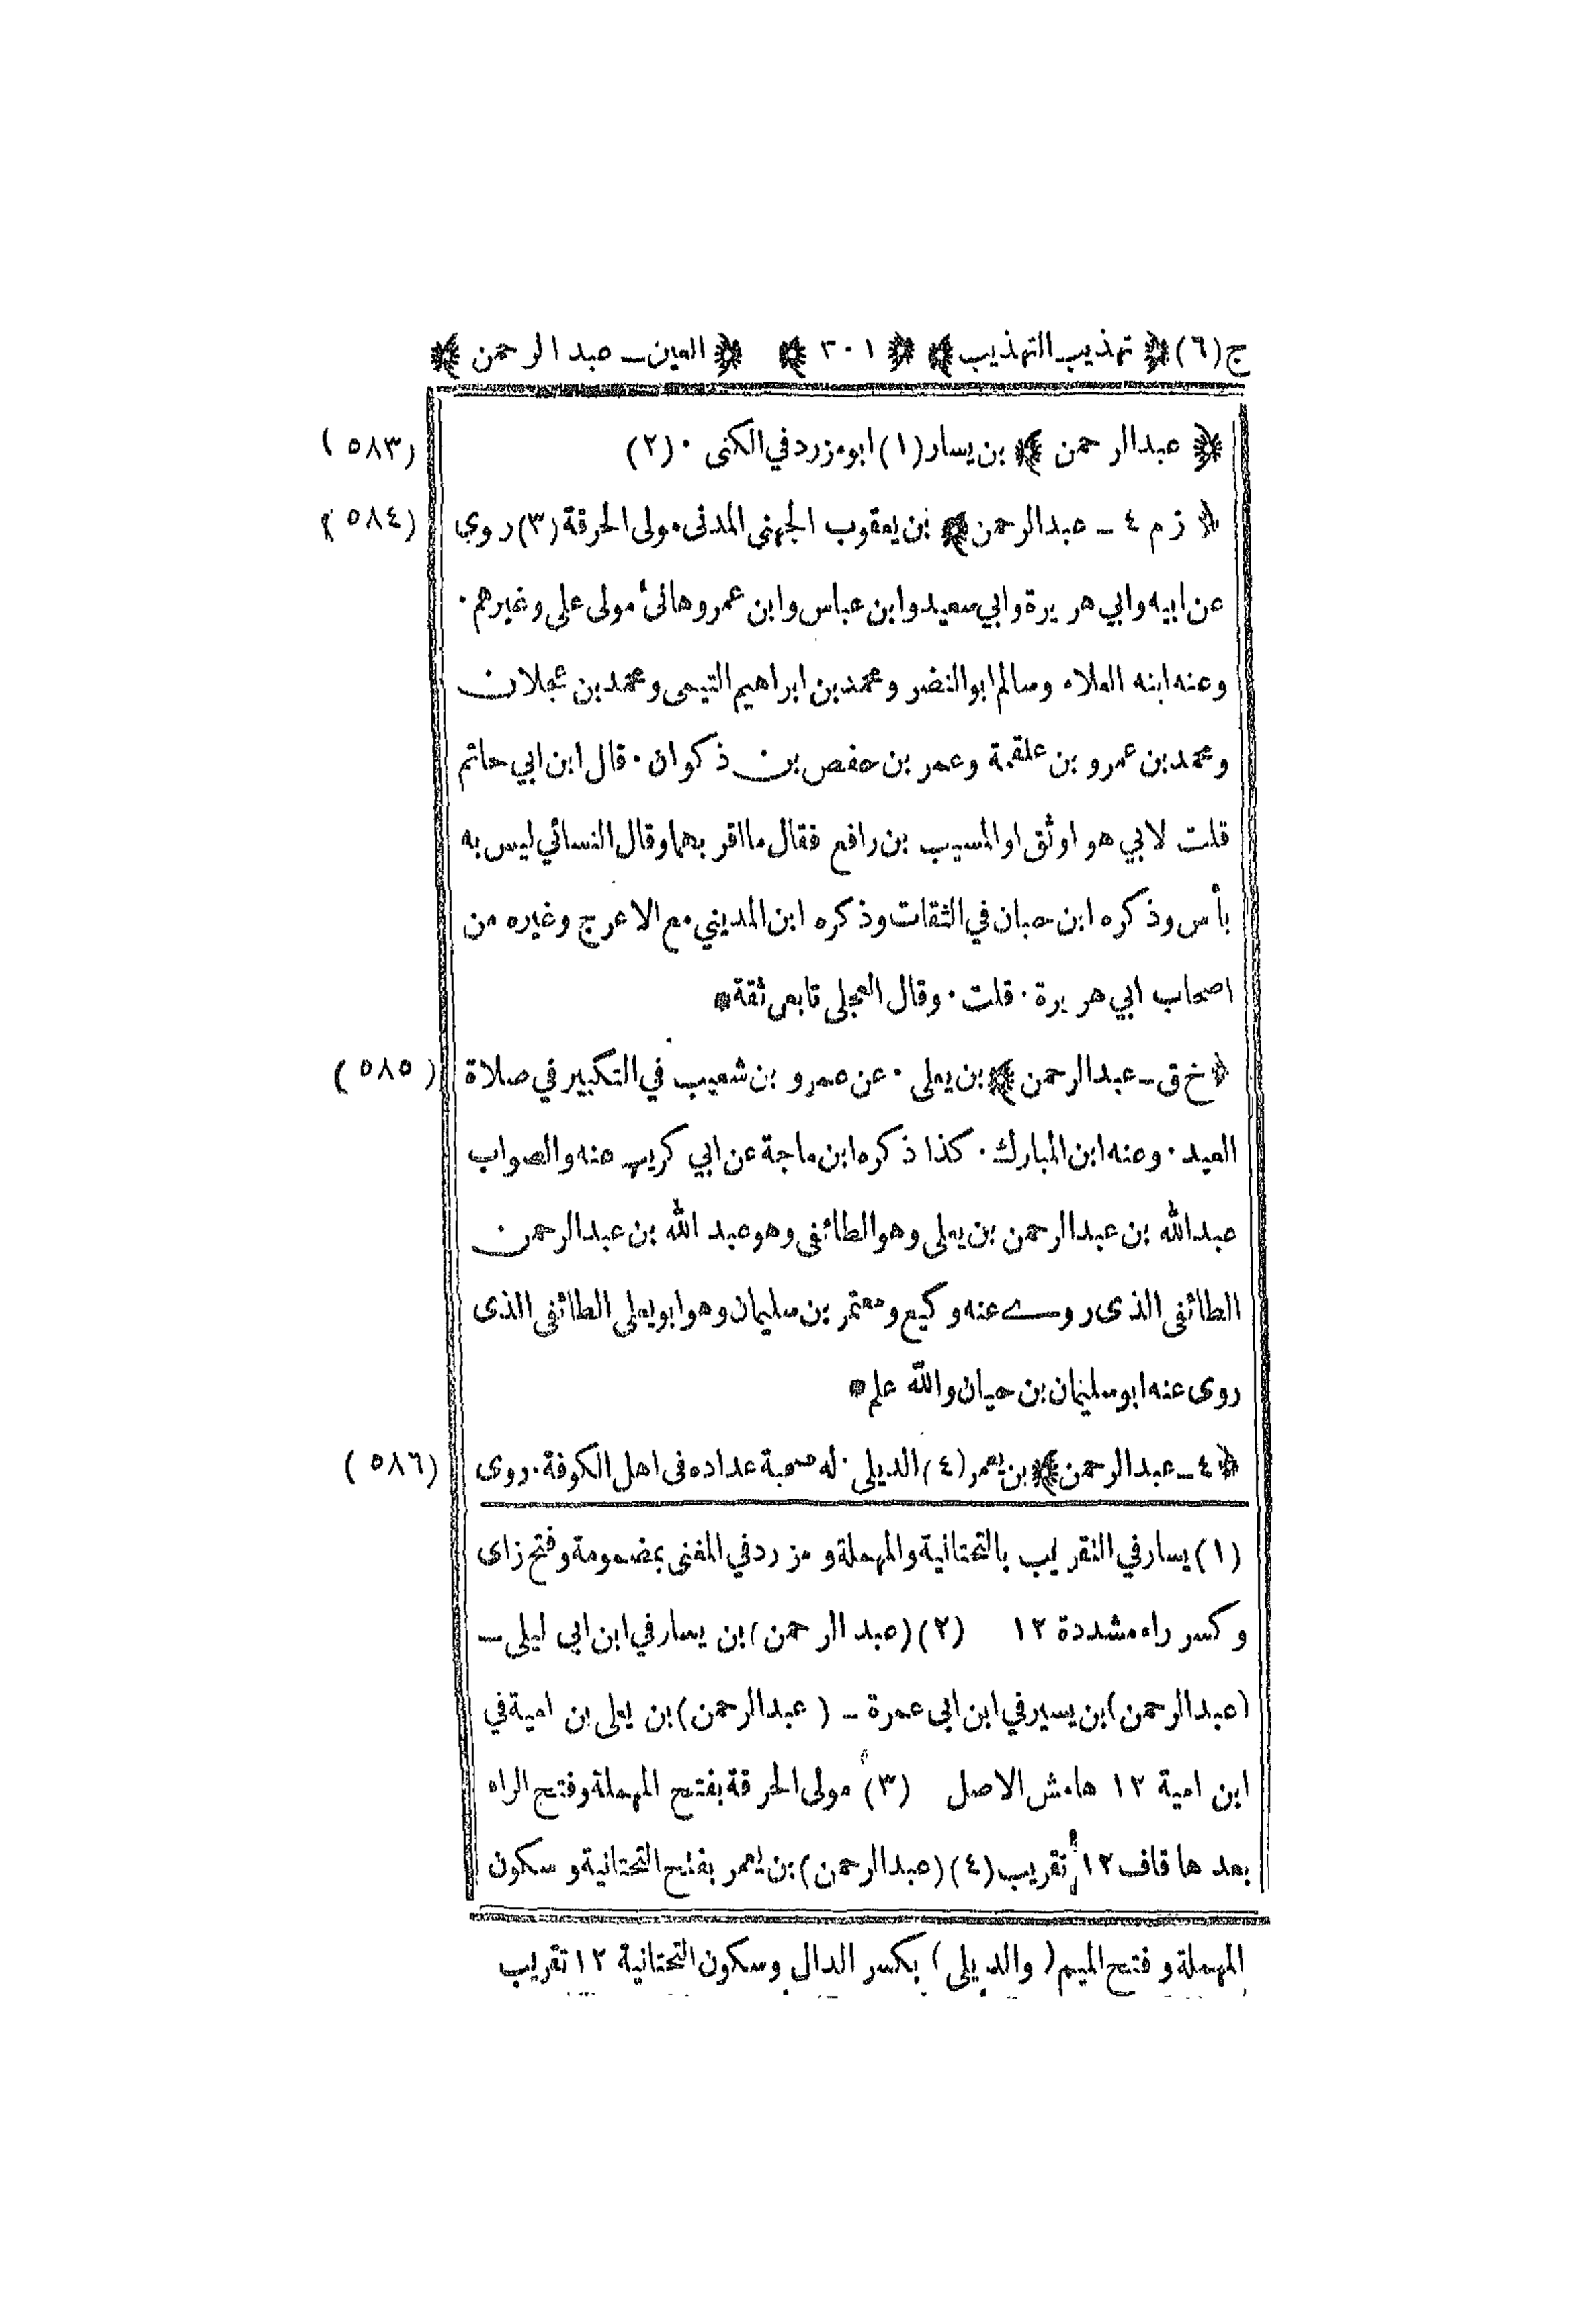 ج (٦) ﴿ تهذيب التهذيب ﴾ ﴿ ٣٠١ ﴾ ﴿ العين ـ عبد الرحمن ﴾
﴿ عبدالرحمن ﴾ بن يسار (١) ابومزرد في الكنى · (٢) (٥٨٣)
﴿ ز م ٤ ـ عبدالرحمن ﴾ بن يعقوب الجهنى المدنى مولى الحرقة (٣) روى (٥٨٤)
عن ابيه وابي هريرة وابي سعيد وابن عباس وابن عمر وهانئ مولى على وغيرهم ·
وعنه ابنه العلاء وسالم ابوالنضر ومحمد بن ابراهيم التيمى ومحمد بن عجلان
ومحمد بن عمرو بن علقمة وعمر بن حفص بن ذكوان · قال ابن ابي حاتم
قلت لابي هو اوثق او المسيب بن رافع فقال ما اقر بهما وقال النسائي ليس به
بأس وذكره ابن حبان في الثقات وذكره ابن المديني مع الاعرج وغيره من
اصحاب ابي هريرة · قلت · وقال العجلى تابعى ثقة *
﴿ خ ق ـ عبدالرحمن ﴾ بن يعلى · عن عمرو بن شعيب في التكبير في صلاة (٥٨٥)
العيد · وعنه ابن المبارك · كذا ذكره ابن ماجة عن ابي كريب عنه والصواب
عبدالله بن عبدالرحمن بن يعلى وهو الطائفى وهو عبد الله بن عبدالرحمن
الطائفى الذى روے عنه وكيع ومعتمر بن سليمان وهو ابو يعلى الطائفى الذى
روى عنه ابو سليمان بن حيان والله علم *
﴿ ٤ ـ عبدالرحمن ﴾ بن يعمر (٤) الديلى · له صحبة عداده فى اهل الكوفة · روى (٥٨٦)
(١) يسار في التقريب بالتحتانية والمهملة و مزرد في المغنى بمضمومة وفتح زاى
وكسر راء مشددة ١٢ (٢) (عبد الرحمن) بن يسار في ابن ابي ليلى ـ
(عبدالرحمن) بن يسير في ابن ابى عمرة ـ (عبدالرحمن) بن يعلى بن امية في
ابن امية ١٢ هامش الاصل (٣) مولى الحرقة بفتح المهملة وفتح الراء
بعدها قاف ١٢ تقريب (٤) (عبدالرحمن) بن يعمر بفتح التحتانية و سكون
المهملة و فتح الميم (والديلى) بكسر الدال وسكون التحتانية ١٢ تقريب